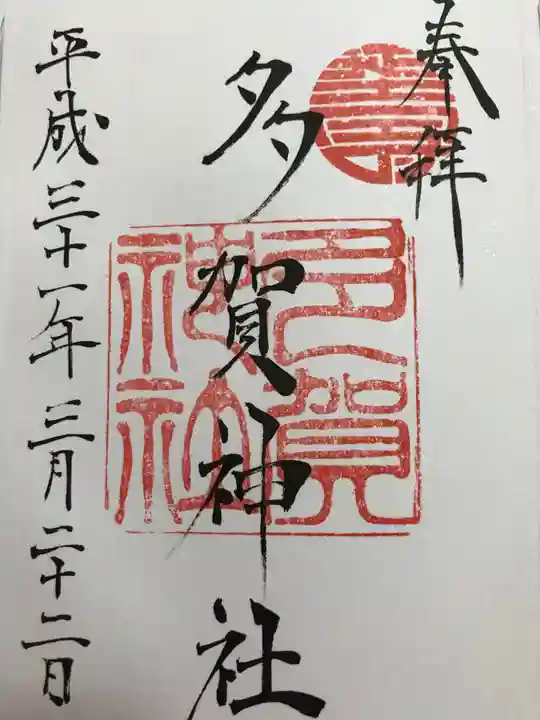 奉拝
多賀神社
多賀
神社
平成三十一年三月二十二日